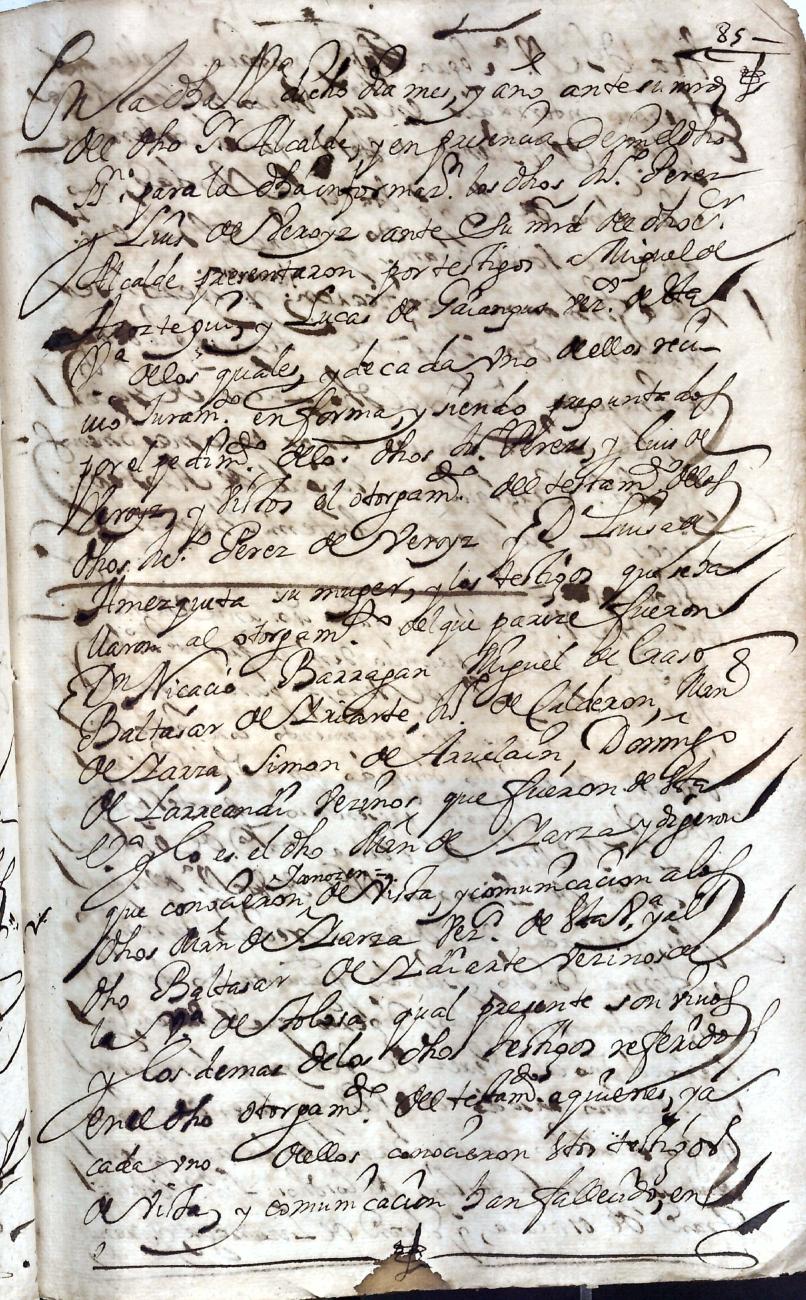 85
En la dha V.ª dicho dia mes, y año ante su mrd
del dho S.r Alcalde, y en presencia de mi el dho
ss.no para la dha informaz.n los dhos Ju.o Perez
y Luis de Veroyz ante Su mrd del dho S.r
Alcalde presentaron por testigos a Miguel de
y Lucas de vez.os de esta
V.ª de los quales, y de cada uno de ellos reci-
uio Juram.to en forma, y siendo preguntados
por el pedim.to de los dhos Ju.o Perez, y Luis de
Veroyz, y vistos el otorgam.to del testam.to de los
dhos Ju.o Perez de Veroyz y D.ª Luisa de
Amezqueta su muger, y los testigos que se ha
llaron al otorgam.to del que pareze fueron
Dn Nicacio Barragan Miguel de
Baltasar de Yriarte, Ju.o de Calderon, Mrn
de Yarza, Simon de Domingo
de Larreandi vezinos que fueron de esta
V.ª y lo es el dho Mrn de Yarza y digeron
que conocieron, y conozen de vista, y comunicacion a los
dhos Mrn de Yarza vez.o de esta V.ª y al
dho Baltasar de Yriarte vezino de
la V.ª de Tolosa, qual presente son viuos
y los demas de los dhos testigos referidos
en el dho otorgam.to del testam.to a quienes, y a
cada uno de ellos conocieron estos testigos
de vista, y comunicacion han fallecido, en